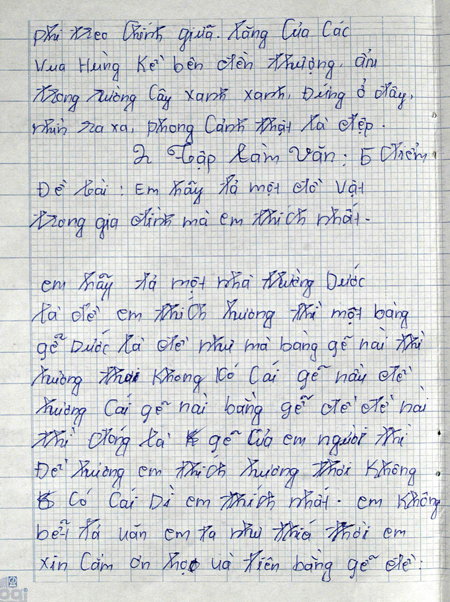 phi treo Chính giữa. Lăng Của Các
Vua Hùng Kề bên đền thượng, ẩn
trong rường Cây xanh xanh, Đứng ở đây,
nhìn ra xa, phong Cảnh thật là đẹp.
2 Tập Làm Văn: 5 Điểm
Đề bài: Em hãy tả một đồ Vật
trong gia đình mà em thích nhất.
em hãy tả một nhà thường Dước
là để em thích hương thì một bàng
gế Dước là để như mà bàng gế nài thì
hương thơi Không Có Cái gế nầu để
hương Cái gế nài bằng gế để để nài
thì đóng là gế Của em người thì
Để hương em thích hương thơi Không
Có Cái Dì em thích nhất. em Không
bết tả uăn em tả như thiá thơi em
xin Cảm ơn học uà tiên bàng gế để: